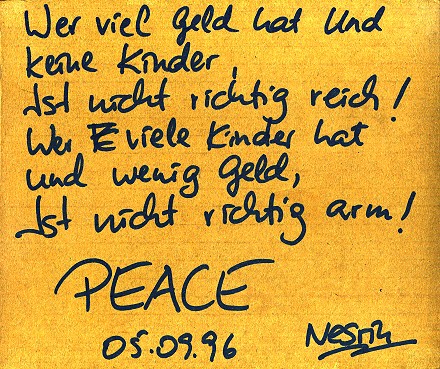 Wer viel Geld hat Und
keine Kinder,
Ist nicht richtig reich!
Wer E viele Kinder hat
und wenig Geld,
Ist nicht richtig arm!
PEACE
05.09.96